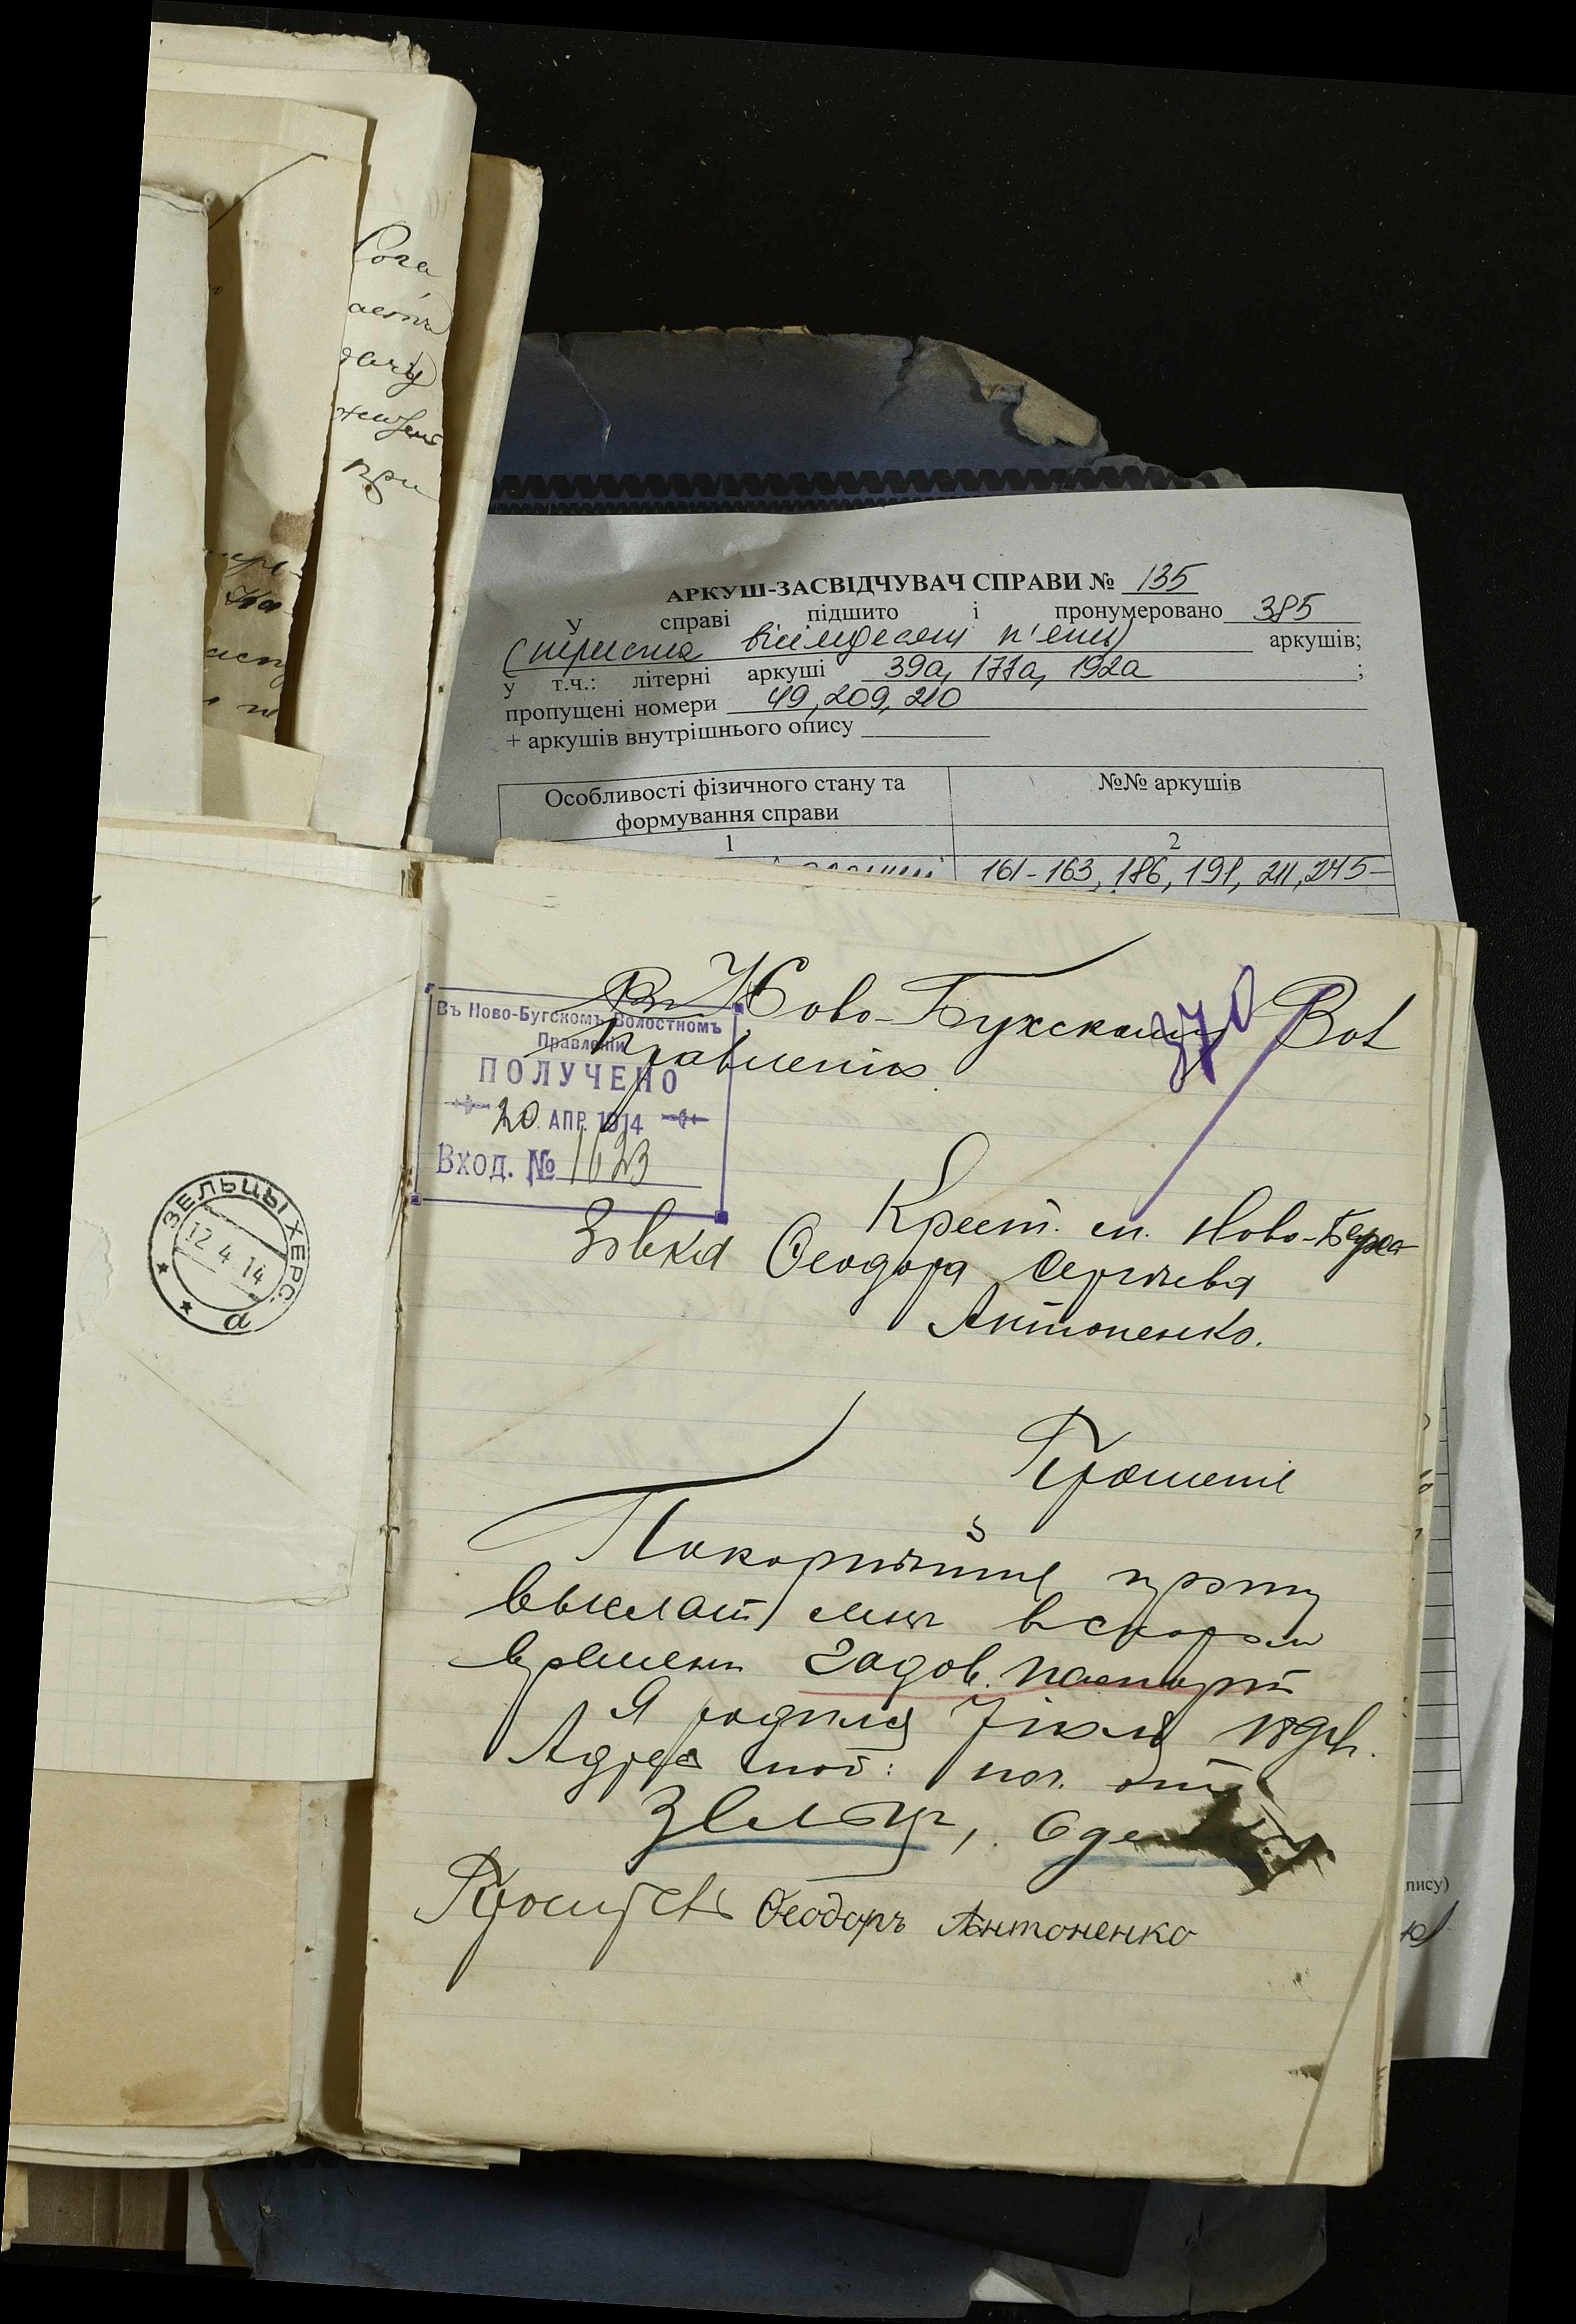 Сога
при
АРКУШ-ЗАСВІДЧУВАЧ СПРАВИ № 135
У справі підшито і пронумеровано 385
(триста вісімдесят п'ять) аркушів;
у т.ч.: літерні аркуші 39а, 177а, 192а ;
пропущені номери 49, 209, 210
+ аркушів внутрішнього опису
Особливості фізичного стану та формування справи
№№ аркушів
1
2
161-163, 186, 191, 211, 245-
Въ Ново-Бугскомъ Волостномъ
Правленіи
ПОЛУЧЕНО
20 АПР. 1914
Вход. № 1623
370
Въ Ново-Бугское Вол
Правленіе
Крест. м. Ново-
Феодора Сергѣева
Антоненко.
Прошеніе
Покорнѣйше прошу
выслать мнѣ в скором
времени годов. паспорт
Я родился 7 іюля
Адрес мой: поч. отд.
Зельцы, Одес
Проситель Феодоръ Антоненко
ЗЕЛЬЦЫ ХЕРС.
12 4 14
а
пису)